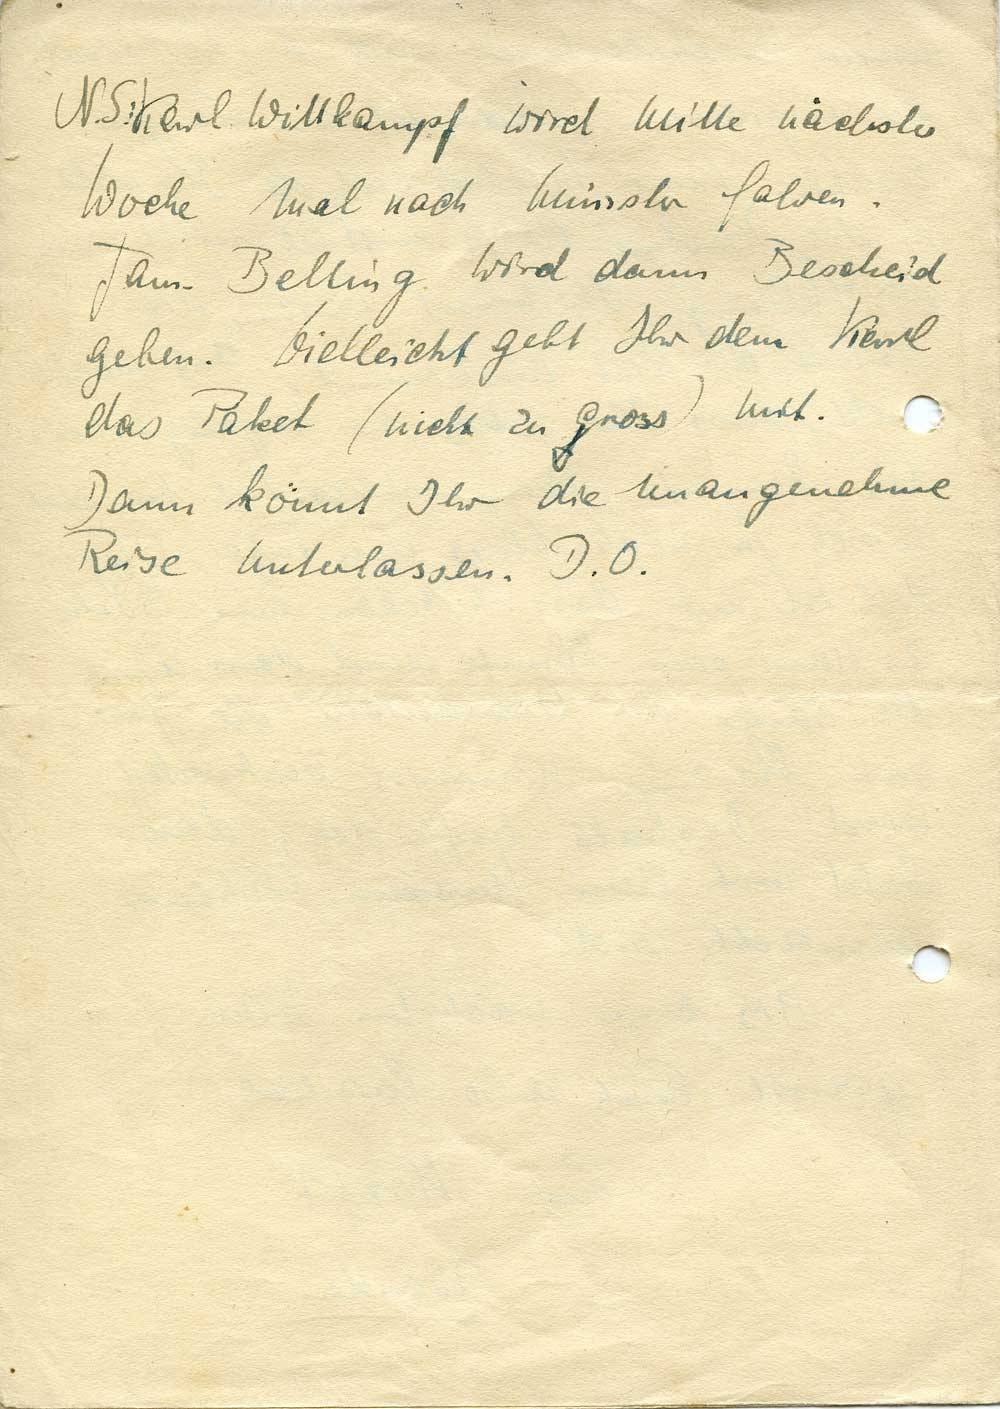 N.S: Karl Wittkampf wird Mitte nächster
Woche mal nach Münster fahren.
Fam. Belling wird dann Bescheid
geben. Vielleicht gebt Ihr dem Karl
das Paket (nicht zu gross) mit.
Dann könnt Ihr die unangenehme
Reise unterlassen. D.O.